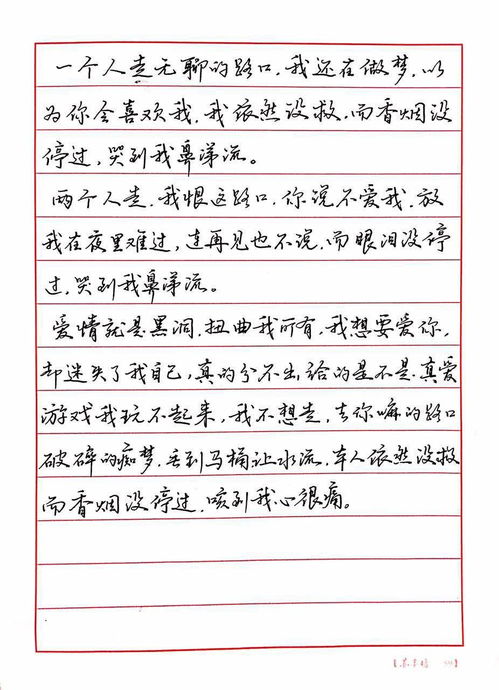 一个人走无聊的路口，我还在做梦，以
为你会喜欢我，我依然没救，而香烟没
停过，哭到我鼻涕流。
两个人走，我恨这路口，你说不爱我，放
我在夜里难过，连再见也不说，而眼泪没停
过，哭到我鼻涕流。
爱情就是黑洞，扭曲我所有，我想要爱你，
却迷失了我自己，真的分不出，给的是不是真爱
游戏我玩不起来，我不想走，去你嘛的路口
破碎的痴梦，丢到马桶让水流，本人依然没救
而香烟没停过，咳到我心很痛。